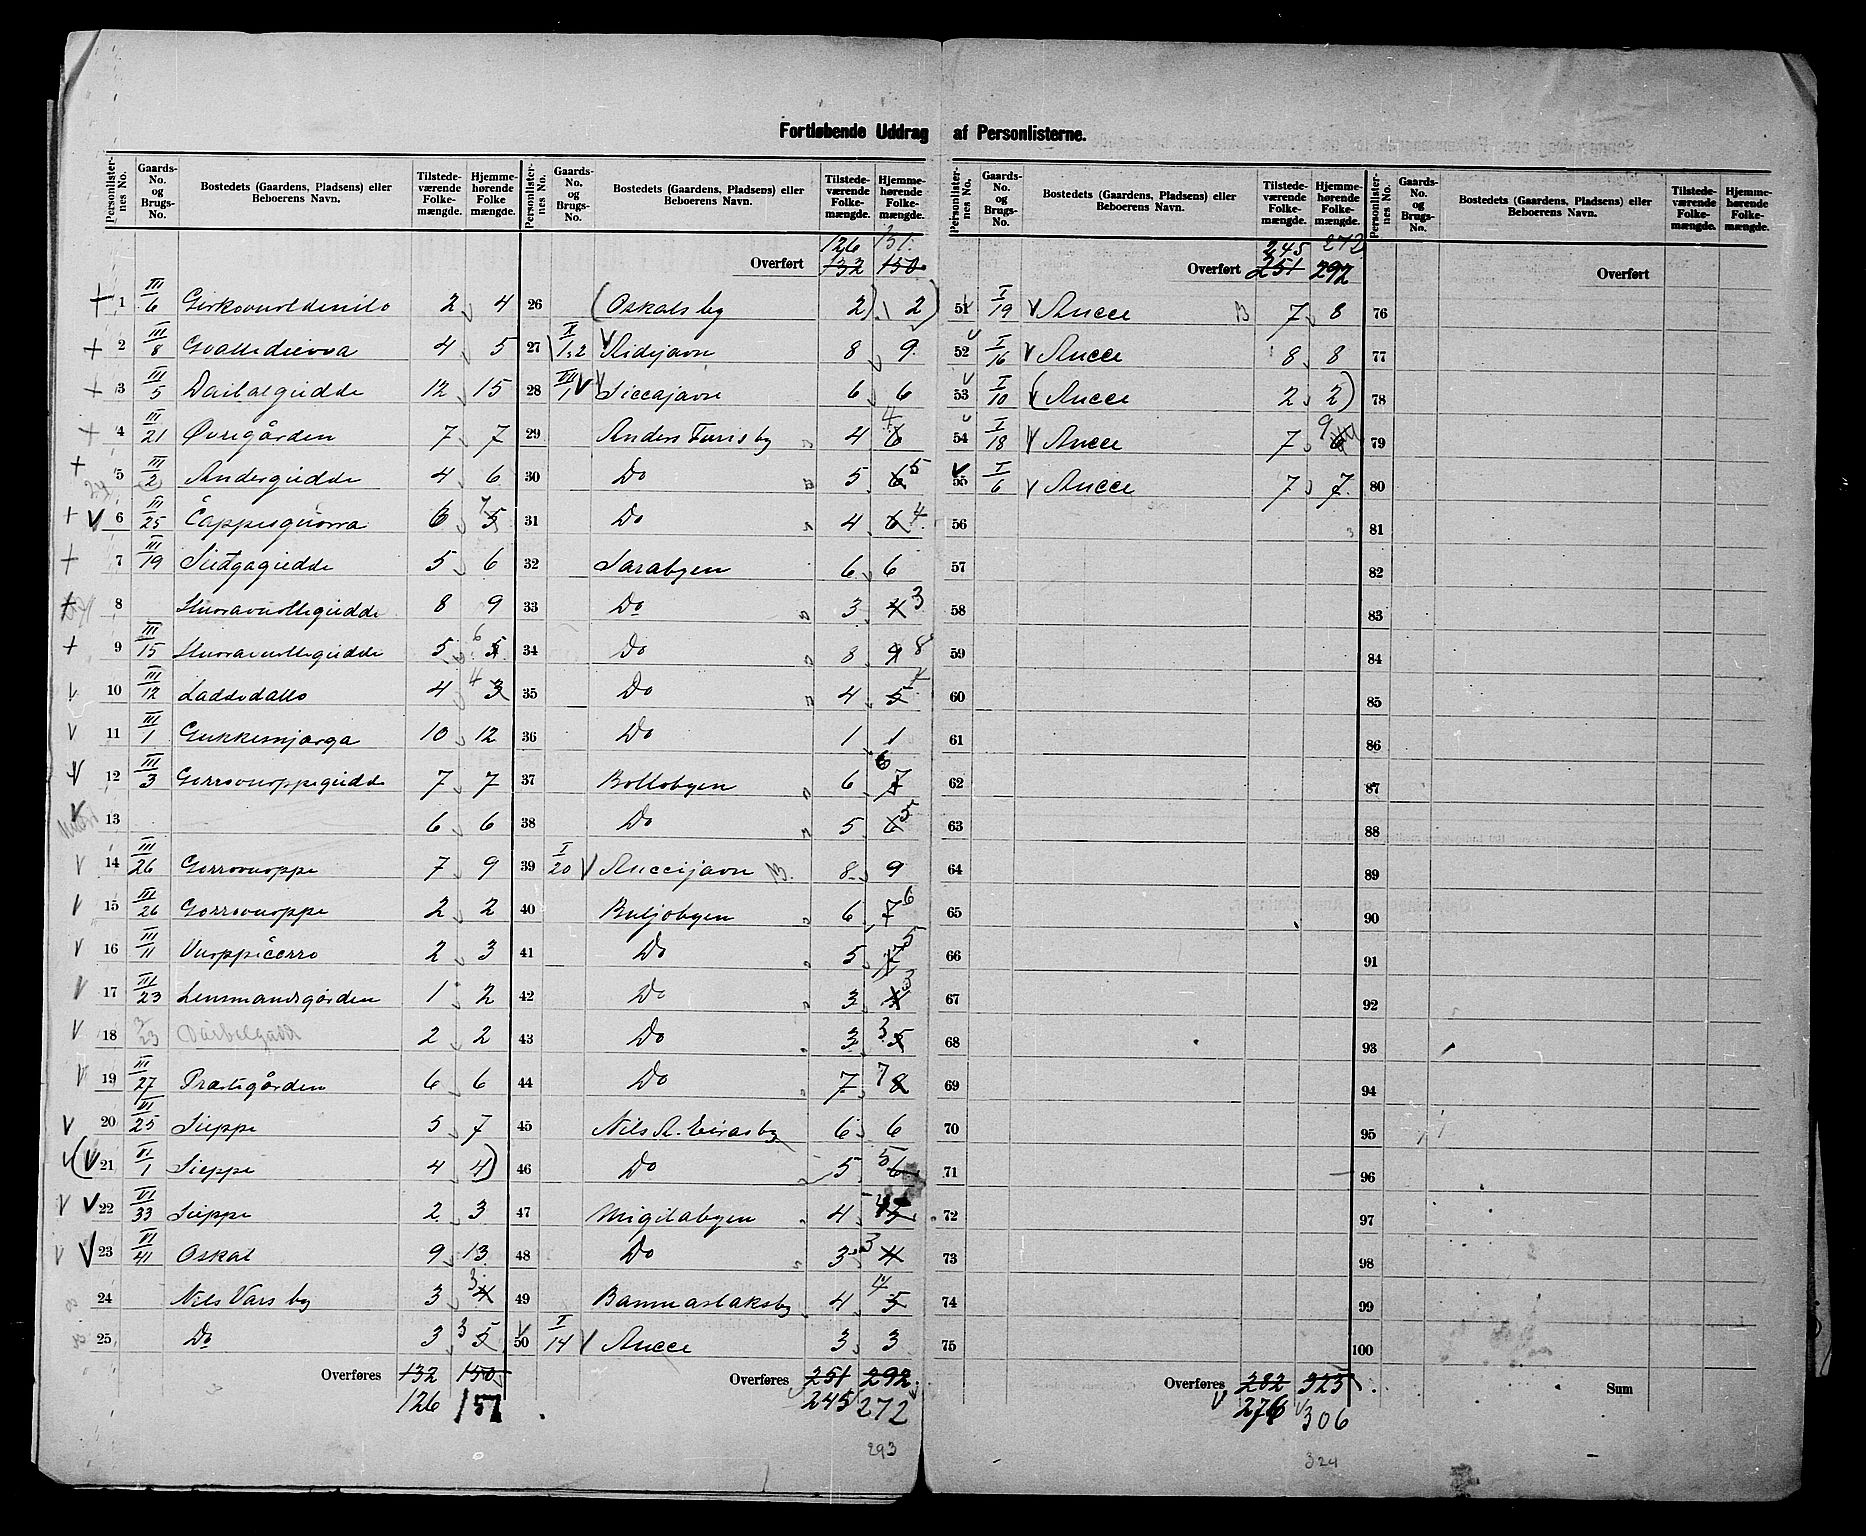 Fortløbende Uddrag af Personlisterne.
Personlisternes No. | Gaards-No. og Brugs-No. | Bostedets (Gaardens, Pladsens) eller Beboerens Navn. | Tilstedeværende Folkemængde. | Hjemmehørende Folkemængde.
+ 1 III/6 2 4
+ 2 III/8 4 5
+ 3 III/5 12 15
+ 4 III/21 Øvregården 7 7
+ 5 III/2 Andergiedde 4 6
+ V 6 III/25 6 7 5
+ 7 III/19 5 6
+ 8 8 9
+ 9 III/15 5 6 5
V 10 III/12 Laddedallo 4 4 3
V 11 III/1 10 12
V 12 III/3 7 7
V 13 6 6
V 14 III/26 Gorrovuoppe 7 9
V 15 III/26 Gorrovuoppe 2 2
V 16 III/11 Vuoppičerro 2 3
V 17 III/23 Lensmandsgården 1 2
V 18 3/23 2 2
V 19 III/27 Præstegården 6 6
V 20 VI/25 Sieppe 5 7
(V 21 VI/1 Sieppe 4 4)
V V 22 VI/33 Sieppe 2 3
V V 23 VI/41 Oskal 9 13
24 Nils Vars by 3 3 4
25 Do 3 3 5
Overføres 132 150
126 151
Personlisternes No. | Gaards-No. og Brugs-No. | Bostedets (Gaardens, Pladsens) eller Beboerens Navn. | Tilstedeværende Folkemængde. | Hjemmehørende Folkemængde.
126 151
Overført 132 150
26 (Oskals by 2) 2)
27 II/1,2 V Aidejavre 8 9
28 VII/1 V Siccajavre 6 6
29 Anders Turis by 4 4 6
30 Do 5 6 5
31 Do 4 6 4
32 Sarabyen 6 6
33 Do 3 4 3
34 Do 8 9 8
35 Do 4 5 4
36 Do 1 1
37 Bollobyen 6 6 7
38 Do 5 6 5
39 I/20 V Auccijavre B. 8 9
40 Buljobyen 6 7 6
41 Do 5 7 5
42 Do 3 4 3
43 Do 3 3 5
44 Do 7 7 8
45 Nils A. Eiras by 6 6
46 Do 5 5 6
47 Migilabyen 4 4 5
48 Do 3 3 4
49 4 4 5
50 I/14 V Aucce 3 3
Overføres 251 292
245 272
293
Personlisternes No. | Gaards-No. og Brugs-No. | Bostedets (Gaardens, Pladsens) eller Beboerens Navn. | Tilstedeværende Folkemængde. | Hjemmehørende Folkemængde.
245 272
Overført 251 292
51 I/19 V Aucce B 7 8
52 I/16 V Aucce 8 8
53 I/10 V (Aucce 2 2)
54 I/18 V Aucce 7 9
55 I/6 V Aucce 7 7
56
57
58
59
60
61
62
63
64
65
66
67
68
69
70
71
72
73
74
75
Overføres 282 325
276 306
324
Personlisternes No. | Gaards-No. og Brugs-No. | Bostedets (Gaardens, Pladsens) eller Beboerens Navn. | Tilstedeværende Folkemængde. | Hjemmehørende Folkemængde.
Overført
76
77
78
79
80
81
82
83
84
85
86
87
88
89
90
91
92
93
94
95
96
97
98
99
100
Sum